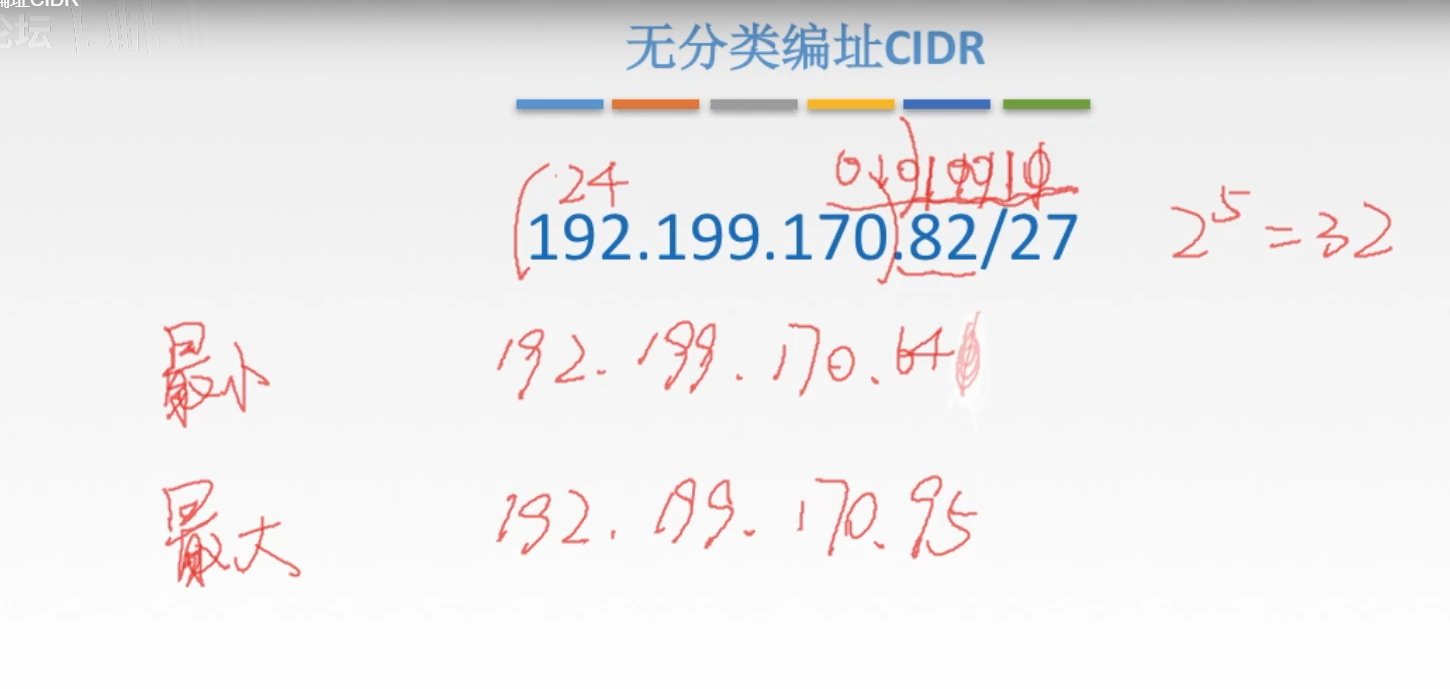 编址CIDR
论坛
无分类编址CIDR
24 01010010
192.199.170.82/27 2^5=32
最小 192.199.170.64
最大 192.199.170.95